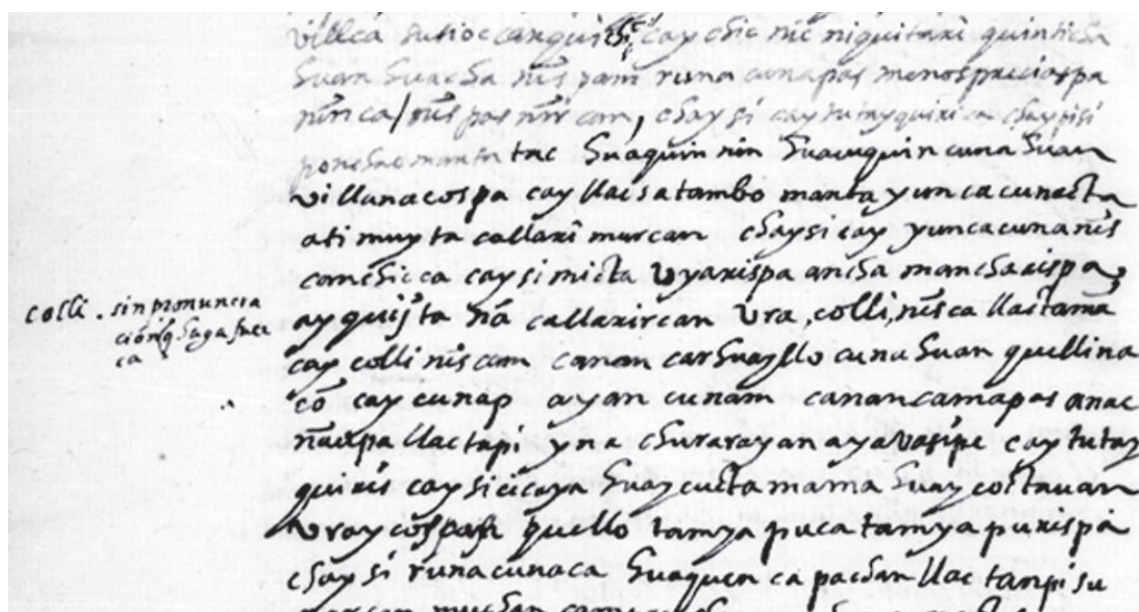 villca sutioc canqui cay chic nic niquitari quinticha
huan huacha ñispam runa cunapas menospreciaspa
ñinca/ ñispas ñircan, chaysi cay tutayquirica chaypisi
ponchaomanta tac huaquinnin huauquincuna huan
villanacospa cay llacsatambo manta yuncacunacta
ati muyta callari murcan chaysi cay yuncacuna ñis
conchicca cay simicta vyarispa ancha mancharispa
colli. sin pronuncia
cionq haga fuer
ca
ayquijta ña callarircan vra, colli, ñisca llactama
cay colli ñiscam canan carhuayllo cuna huan quellina
cō cay cunap ayan cunam canancamapas anac
llactapi yna churarayan aya vasipi cay tutay
quiris cay siciaya huaycucta mama huaycoctauan
vraycospas quello tamya puca tamya purispa
chaysi runacunaca huaquenca pachan llactanpi su